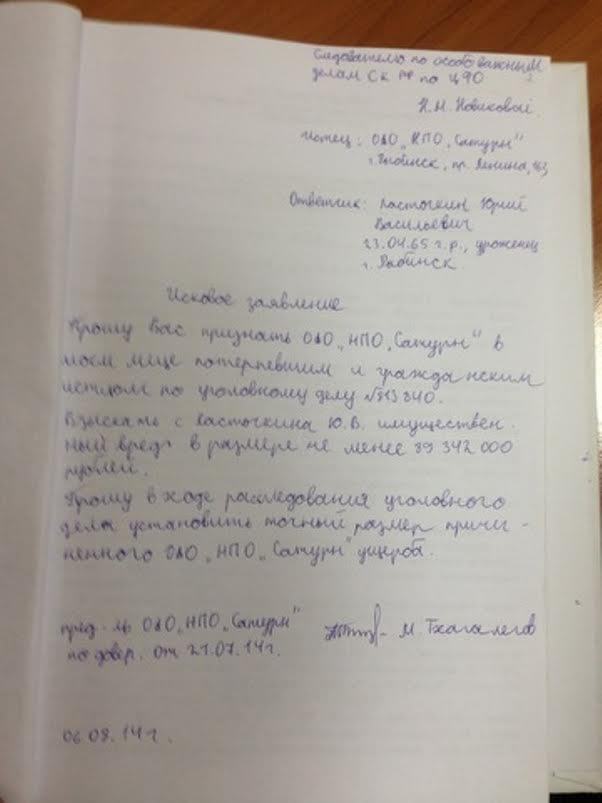 Следователю по особо важным
делам СК РФ по ЦФО
Н.Н. Новиковой.
Истец: ОАО „НПО „Сатурн"
г. Рыбинск, пр. Ленина, 163
Ответчик: Ласточкин Юрий
Васильевич
23.04.65 г.р., уроженец
г. Рыбинск.
Исковое заявление
Прошу Вас признать ОАО „НПО „Сатурн" в
моем лице потерпевшим и гражданским
истцом по уголовному делу №813840.
Взыскать с Ласточкина Ю.В. имуществен-
ный вред в размере не менее 89 342 000
рублей.
Прошу в ходе расследования уголовного
дела установить точный размер причи-
ненного ОАО „НПО „Сатурн" ущерба.
пред-ль ОАО „НПО „Сатурн"
М. Тхагалегов
по довер. от 21.07.14г.
06.08.14г.